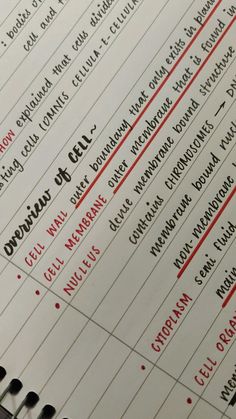 : bodies of
cell and t
HOW explained that cells divide
sting cells (OMNIS CELLULA-E-CELLU
overview of CELL~
CELL WALL outer boundary that only exists in plan
CELL MEMBRANE outer membrane that is found in
NUCLEUS dence membrane bound structure
contains CHROMOSOMES → D
membrane bound nuc
non-membrane
CYTOPLASM semi fluid
main
CELL ORGA
mem